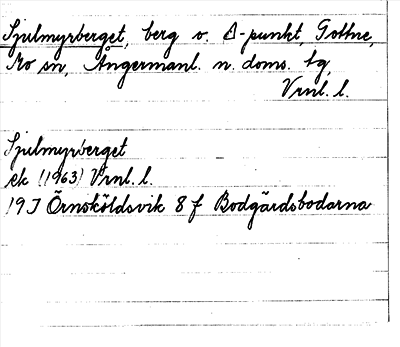 Sjulmyrberget, berg o. Δ-punkt, Gottne,
Mo sn, Ångermanl. n. doms. tg,
Vrnl. l.
Sjulmyrberget
ek (1963) Vrnl. l.
19J Örnsköldsvik 8 f Bodgårdsbodarna